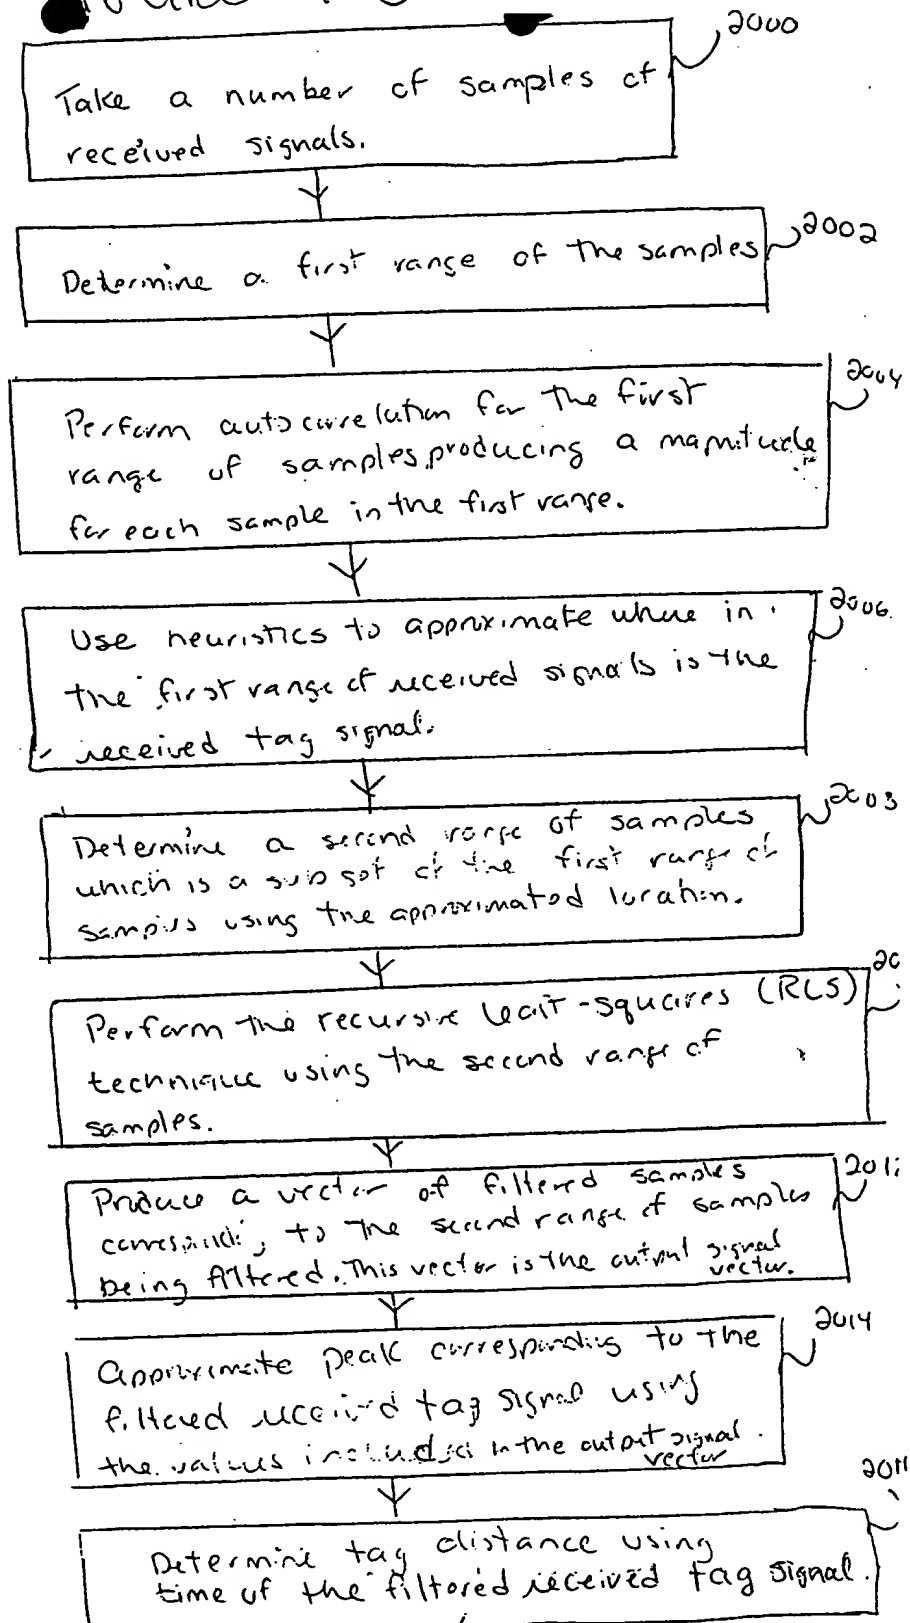 2000
Take a number of samples of
received signals.
2002
Determine a first range of the samples
2004
Perform autocorrelation for the first
range of samples producing a magnitude
for each sample in the first range.
2006
Use heuristics to approximate where in
the first range of received signals is the
received tag signal.
2008
Determine a second range of samples
which is a subset of the first range of
samples using the approximated location.
20
Perform the recursive least-squares (RLS)
technique using the second range of
samples.
201
Produce a vector of filtered samples
corresponding to the second range of samples
being filtered. This vector is the output signal
vector.
2014
Approximate peak corresponding to the
filtered received tag signal using
the values included in the output signal
vector
201
Determine tag distance using
time of the filtered received tag signal.